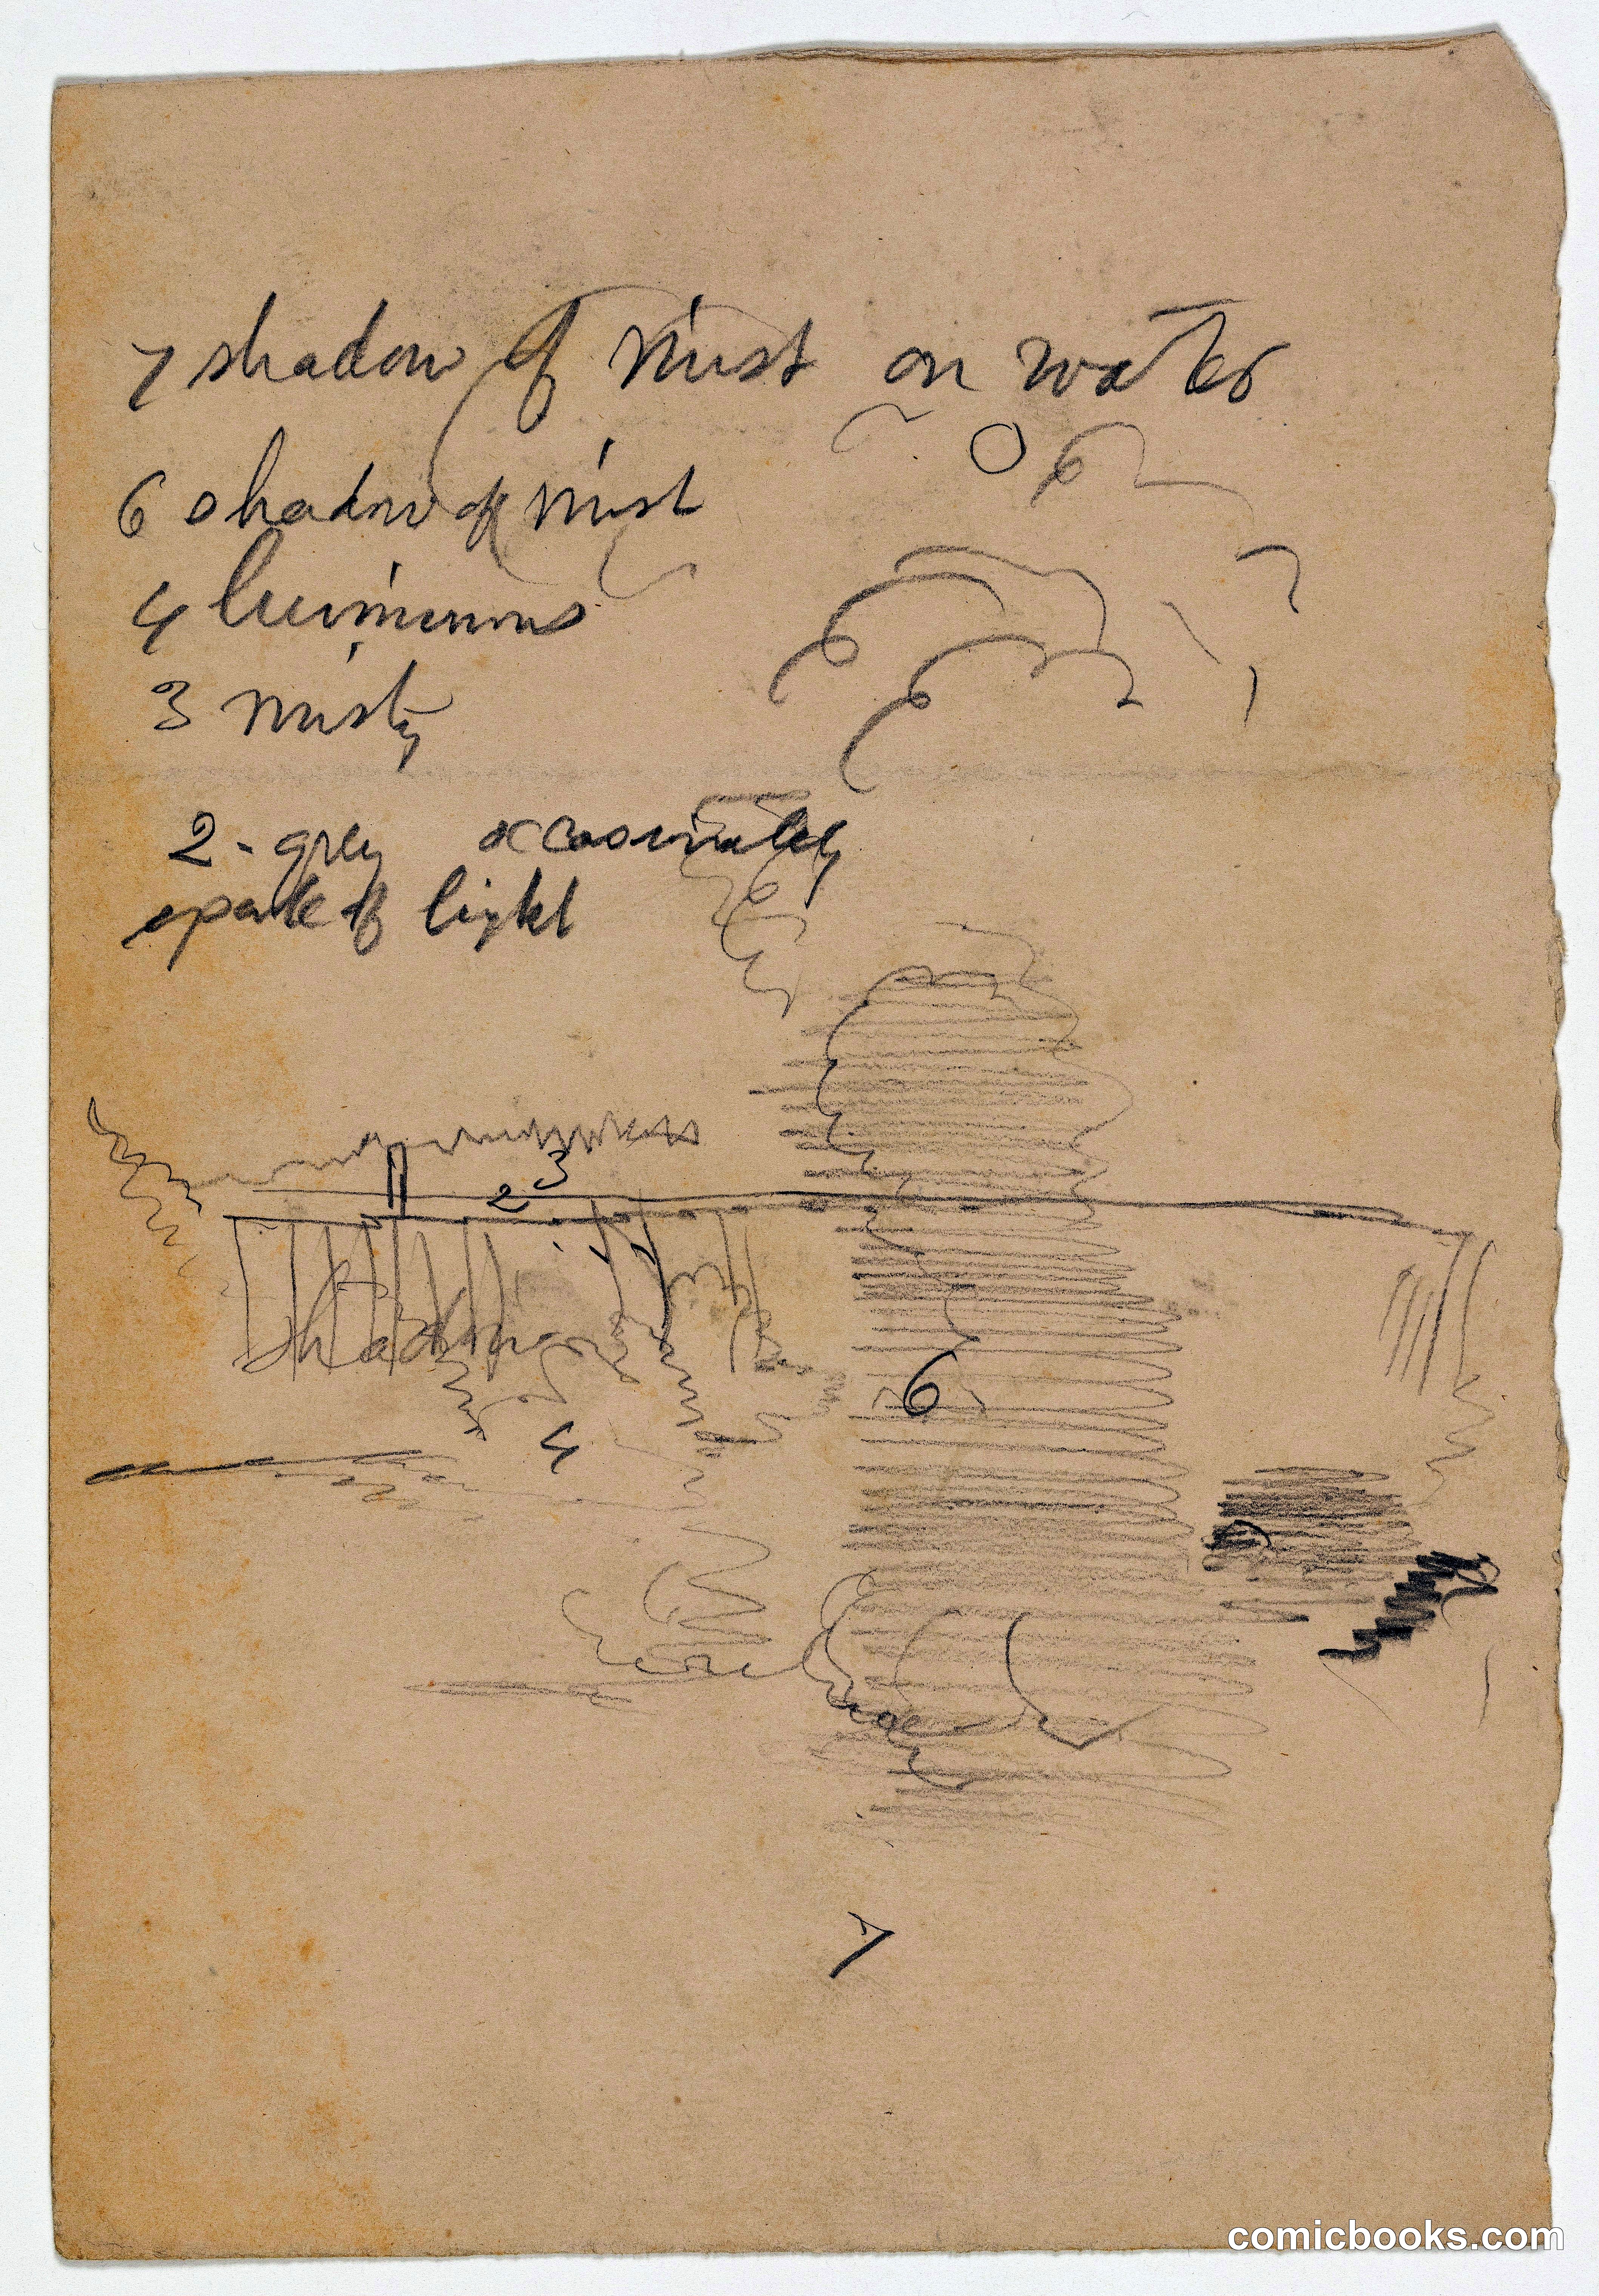 7 shadow of mist on water
6 shadow of mist
4 luminous
3 misty
2 - grey occasionally
spark of light
3
2
shadow
6
4
7
comicbooks.com